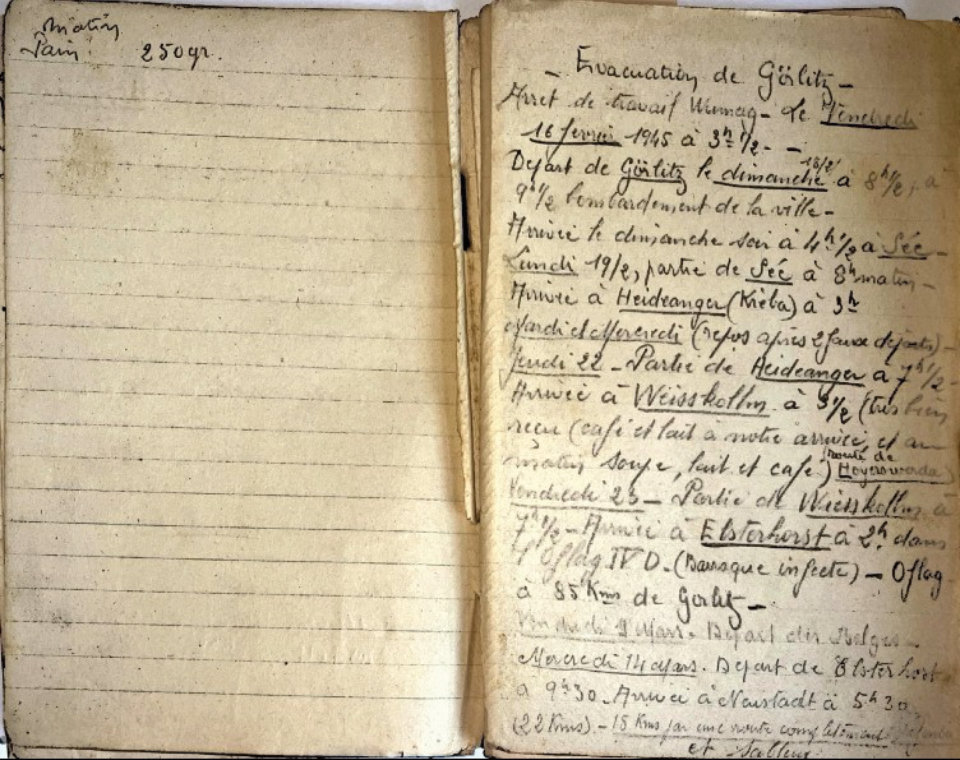 matin
Pain 250gr.
- Evacuation de Görlitz -
Arret de travail Wumag - Le Vendredi
16 fevrier 1945 à 3h 1/2 - -
Depart de Görlitz le dimanche 18/2 à 8h 1/2, à
9h 1/2 bombardement de la ville -
Arrivée le dimanche soir à 4h 1/2 à Séc -
Lundi 19/2, partie de Séc à 8h matin -
Arrivée à Heideanger (Kréba) à 3h
Mardi et Mercredi (repos après 2 faux departs) -
Jeudi 22 - Partie de Heideanger à 7h 1/2 -
Arrivée à Weisskollm à 3 1/2 (très bien
reçu (café et lait à notre arrivée, et au
matin soupe, lait et café) (route de Hoyerswerda)
Vendredi 23 - Partie de Weisskollm à
7h 1/2 - Arrivée à Elsterhorst à 2h dans
l'Oflag IV D. (Barraque infecte) - Oflag
à 85 Kms de Gorlitz -
Vendredi 9 Mars. Depart des Belges -
Mercredi 14 Mars. Depart de Elsterhorst
à 9h30. Arrivée à Neustadt à 5h30
(22 Kms) - 15 Kms par une route complètement
et